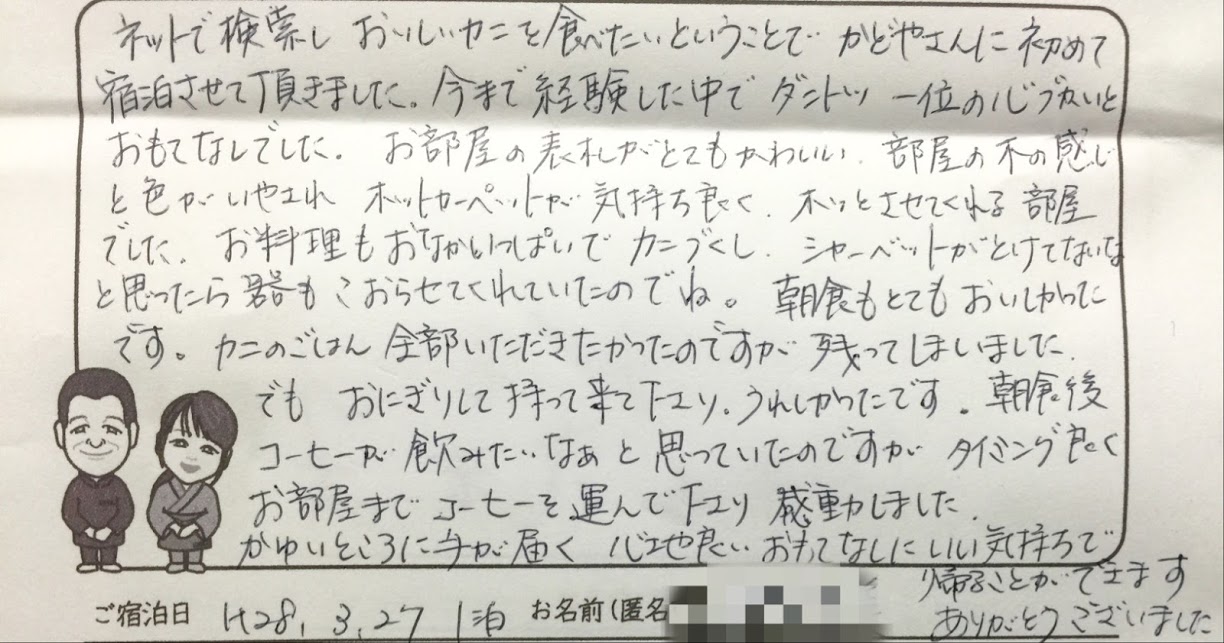 ネットで検索し おいしいカニを食べたいということで かどやさんに初めて
宿泊させて頂きました。今まで経験した中で ダントツ 一位の心づかいと
おもてなしでした。 お部屋の表札がとてもかわいい、部屋の木の感じ
と色がいやされ ホットカーペットが気持ち良く、ホッとさせてくれる部屋
でした。 お料理もおなかいっぱいで カニづくし、シャーベットがとけてないな
と思ったら器もこおらせてくれていたのでね。 朝食もとてもおいしかった
です。 カニのごはん 全部いただきたかったのですが 残ってしまいました、
でも おにぎりして持って来て下さり、うれしかったです。朝食後
コーヒーが飲みたいなぁと思っていたのですが タイミング良く
お部屋までコーヒーを運んで下さり 感動しました、
かゆいところに手が届く 心地良いおもてなしにいい気持ちで
帰ることができます
ありがとうございました
ご宿泊日 H28, 3, 27 1泊 お名前(匿名